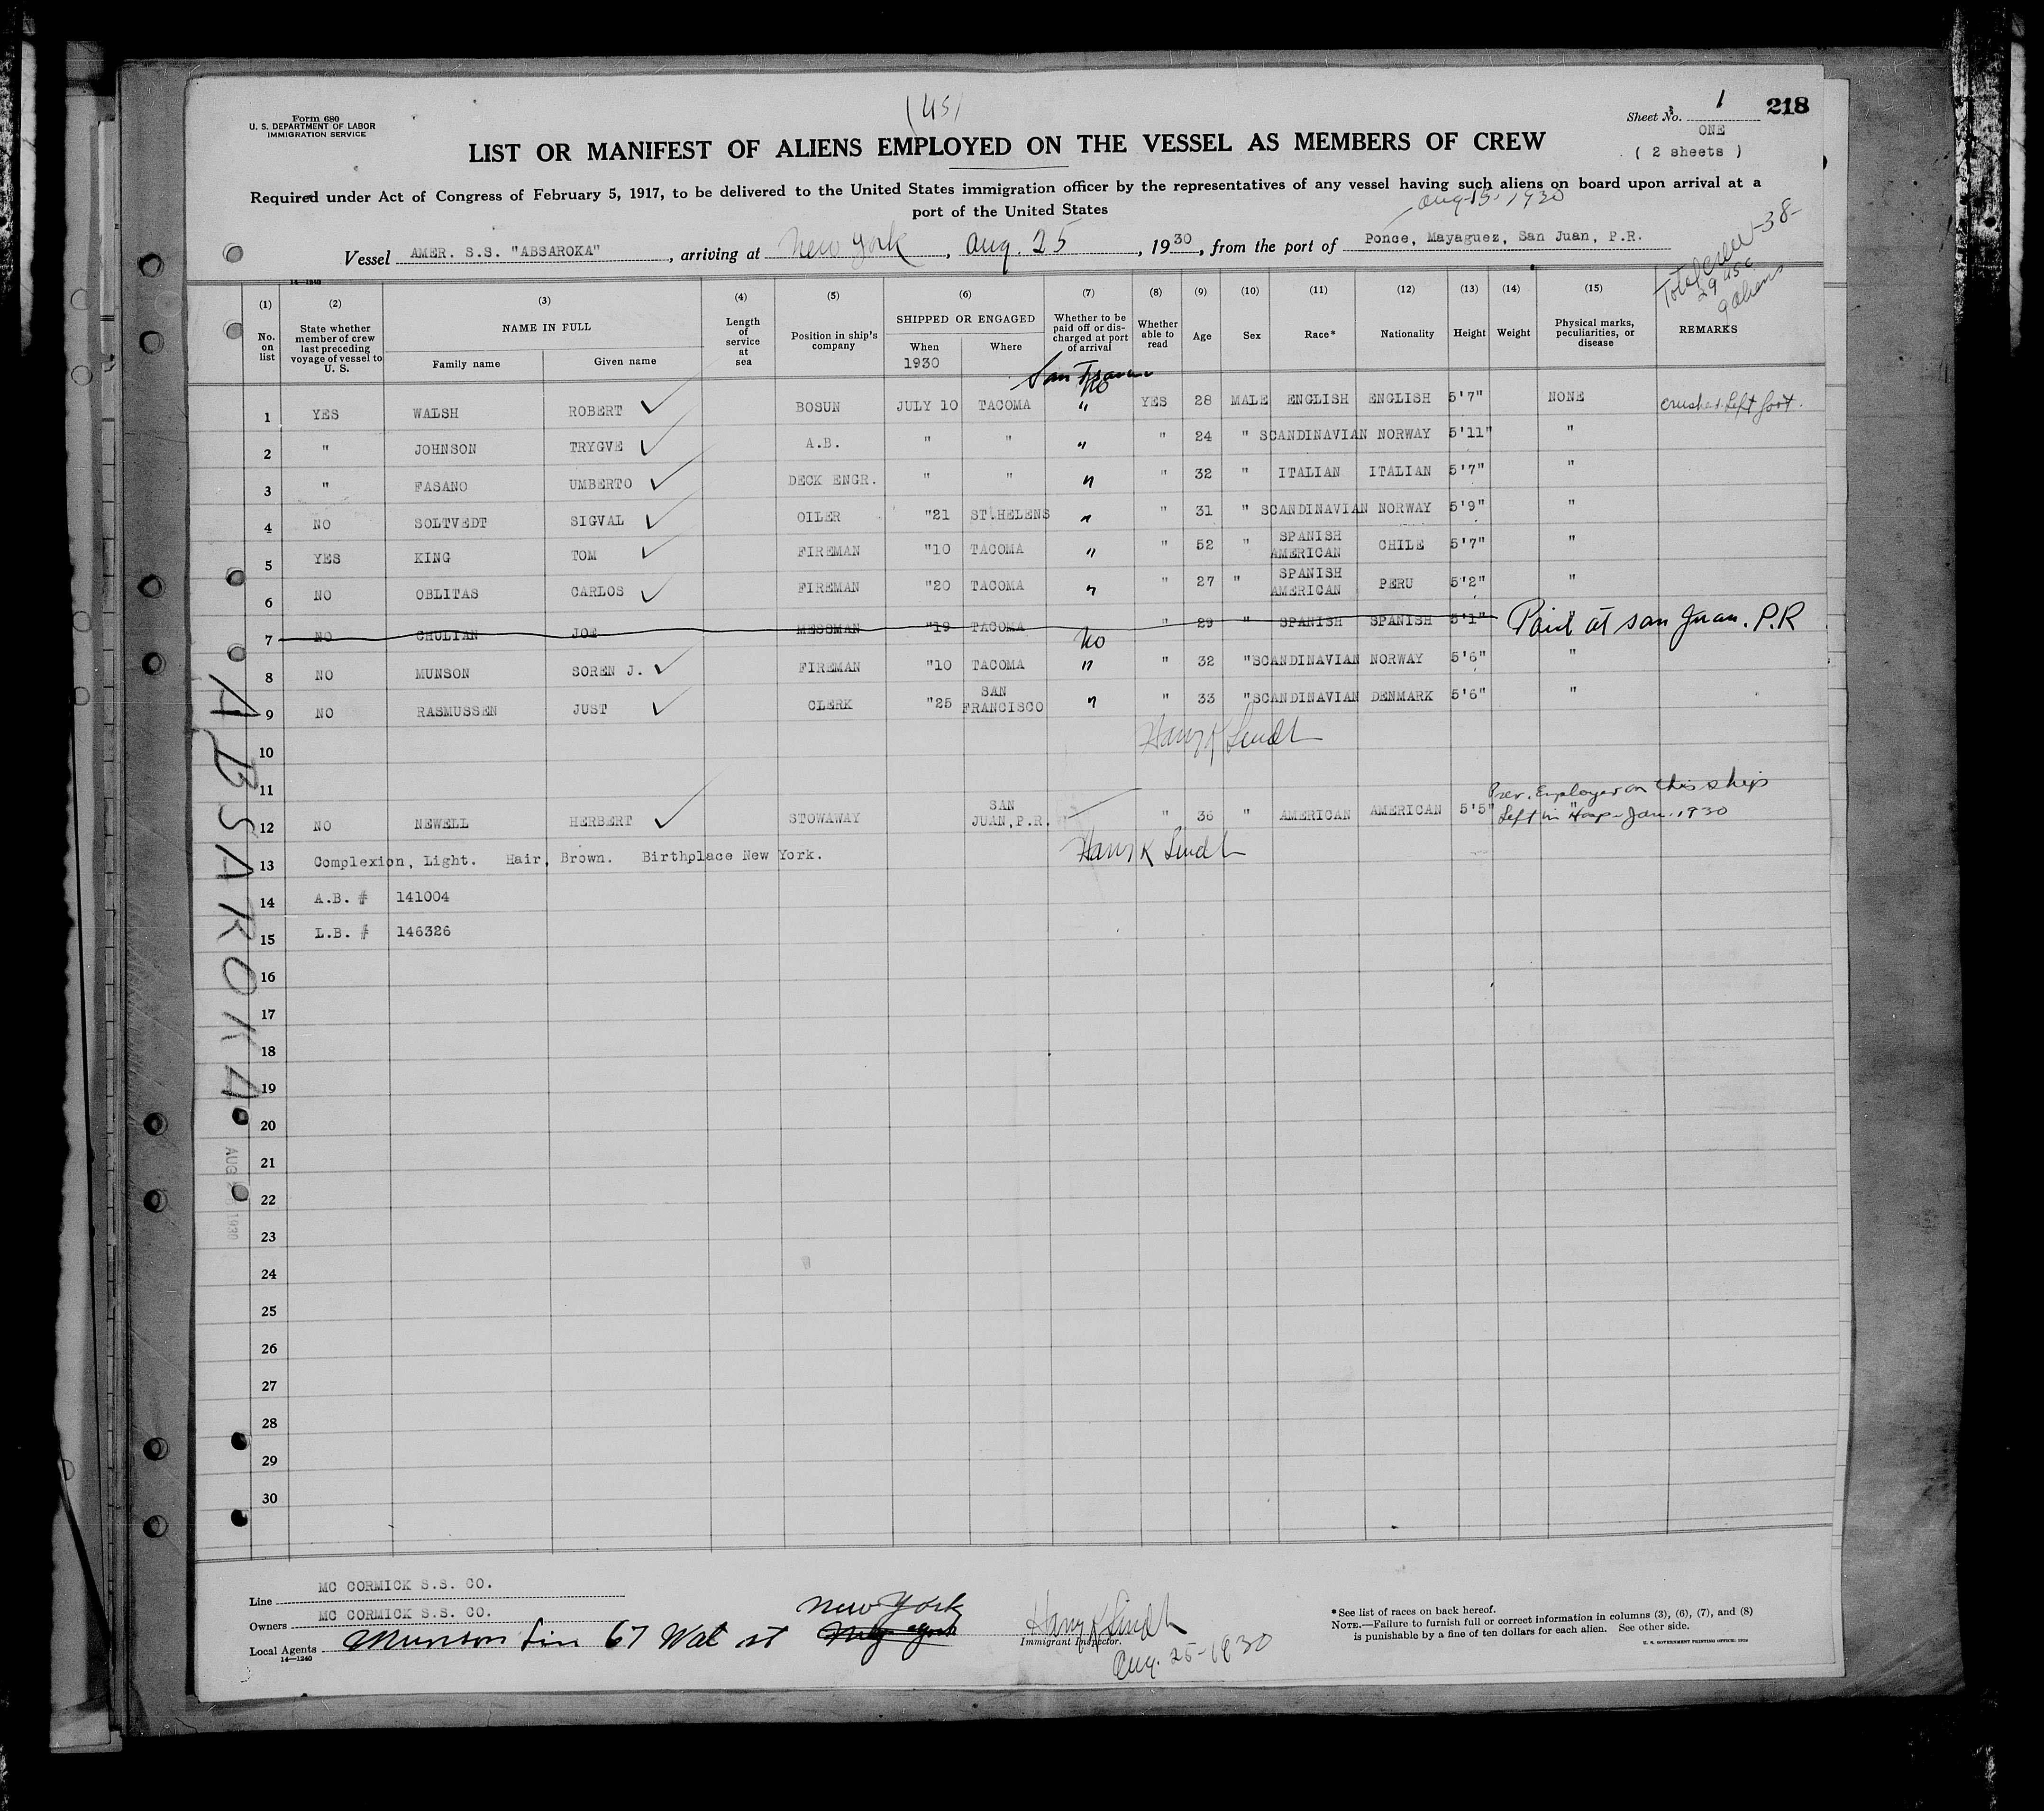 (US)
Form 680
U. S. DEPARTMENT OF LABOR
IMMIGRATION SERVICE
Sheet No. 1 218
ONE
( 2 sheets )
LIST OR MANIFEST OF ALIENS EMPLOYED ON THE VESSEL AS MEMBERS OF CREW
Required under Act of Congress of February 5, 1917, to be delivered to the United States immigration officer by the representatives of any vessel having such aliens on board upon arrival at a
port of the United States
Aug 15, 1930
Vessel AMER. S.S. "ABSAROKA", arriving at New York, Aug. 25, 1930, from the port of Ponce, Mayaguez, San Juan, P.R.
Total crew -38-
29 USC
9 aliens
14—1240
(1) (2) (3) (4) (5) (6) (7) (8) (9) (10) (11) (12) (13) (14) (15)
No. on list
State whether member of crew last preceding voyage of vessel to U. S.
NAME IN FULL
Family name Given name
Length of service at sea
Position in ship's company
SHIPPED OR ENGAGED
When Where
1930
Whether to be paid off or discharged at port of arrival
Whether able to read
Age Sex Race* Nationality Height Weight
Physical marks, peculiarities, or disease
REMARKS
No
1 YES WALSH ROBERT BOSUN JULY 10 TACOMA " YES 28 MALE ENGLISH ENGLISH 5'7" NONE crushed left foot.
2 " JOHNSON TRYGVE A.B. " " " " 24 " SCANDINAVIAN NORWAY 5'11" "
3 " FASANO UMBERTO DECK ENGR. " " " " 32 " ITALIAN ITALIAN 5'7" "
4 NO SOLTVEDT SIGVAL OILER "21 ST.HELENS " " 31 " SCANDINAVIAN NORWAY 5'9" "
5 YES KING TOM FIREMAN "10 TACOMA " " 52 " SPANISH AMERICAN CHILE 5'7" "
6 NO OBLITAS CARLOS FIREMAN "20 TACOMA " " 27 " SPANISH AMERICAN PERU 5'2" "
7 NO CHULIAN JOE MESSMAN "19 TACOMA No " 29 " SPANISH SPANISH 5'1" Paid at San Juan. P.R
8 NO MUNSON SOREN J. FIREMAN "10 TACOMA " " 32 " SCANDINAVIAN NORWAY 5'6" "
9 NO RASMUSSEN JUST CLERK "25 SAN FRANCISCO " " 33 " SCANDINAVIAN DENMARK 5'6" "
10 Harry K Lindt
11
12 NO NEWELL HERBERT STOWAWAY SAN JUAN, P.R. " 36 " AMERICAN AMERICAN 5'5" "
Prev. Employed on this ship
Left in Hosp - Jan. 1930
13 Complexion, Light. Hair, Brown. Birthplace New York. Harry K Lindt
14 A.B. # 141004
15 L.B. # 146326
16
17
18
19
20
21
22
23
24
25
26
27
28
29
30
ABSAROKA
AUG 1930
Line MC CORMICK S.S. CO.
Owners MC CORMICK S.S. CO.
Local Agents Munson Line 67 Wall st New York
14—1240
Harry K Lindt
Immigrant Inspector.
Aug. 25-1930
*See list of races on back hereof.
NOTE.—Failure to furnish full or correct information in columns (3), (6), (7), and (8)
is punishable by a fine of ten dollars for each alien. See other side.